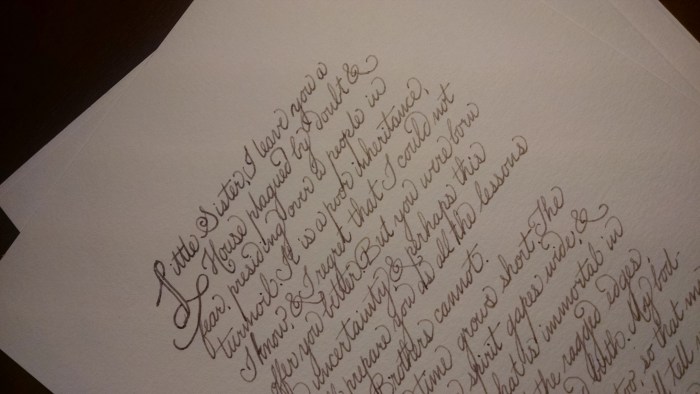 Little Sister, I leave you a
House plagued by doubt &
fear, presiding over a people in
turmoil. It is a poor inheritance,
I know, & I regret that I could not
offer you better. But you were born
uncertainty & perhaps this
prepare you as all the lessons
Brothers cannot.
time grows short. The
spirit gapes wide, &
immortal in
the ragged edges,
birth. My bod-
too, so that
will tell